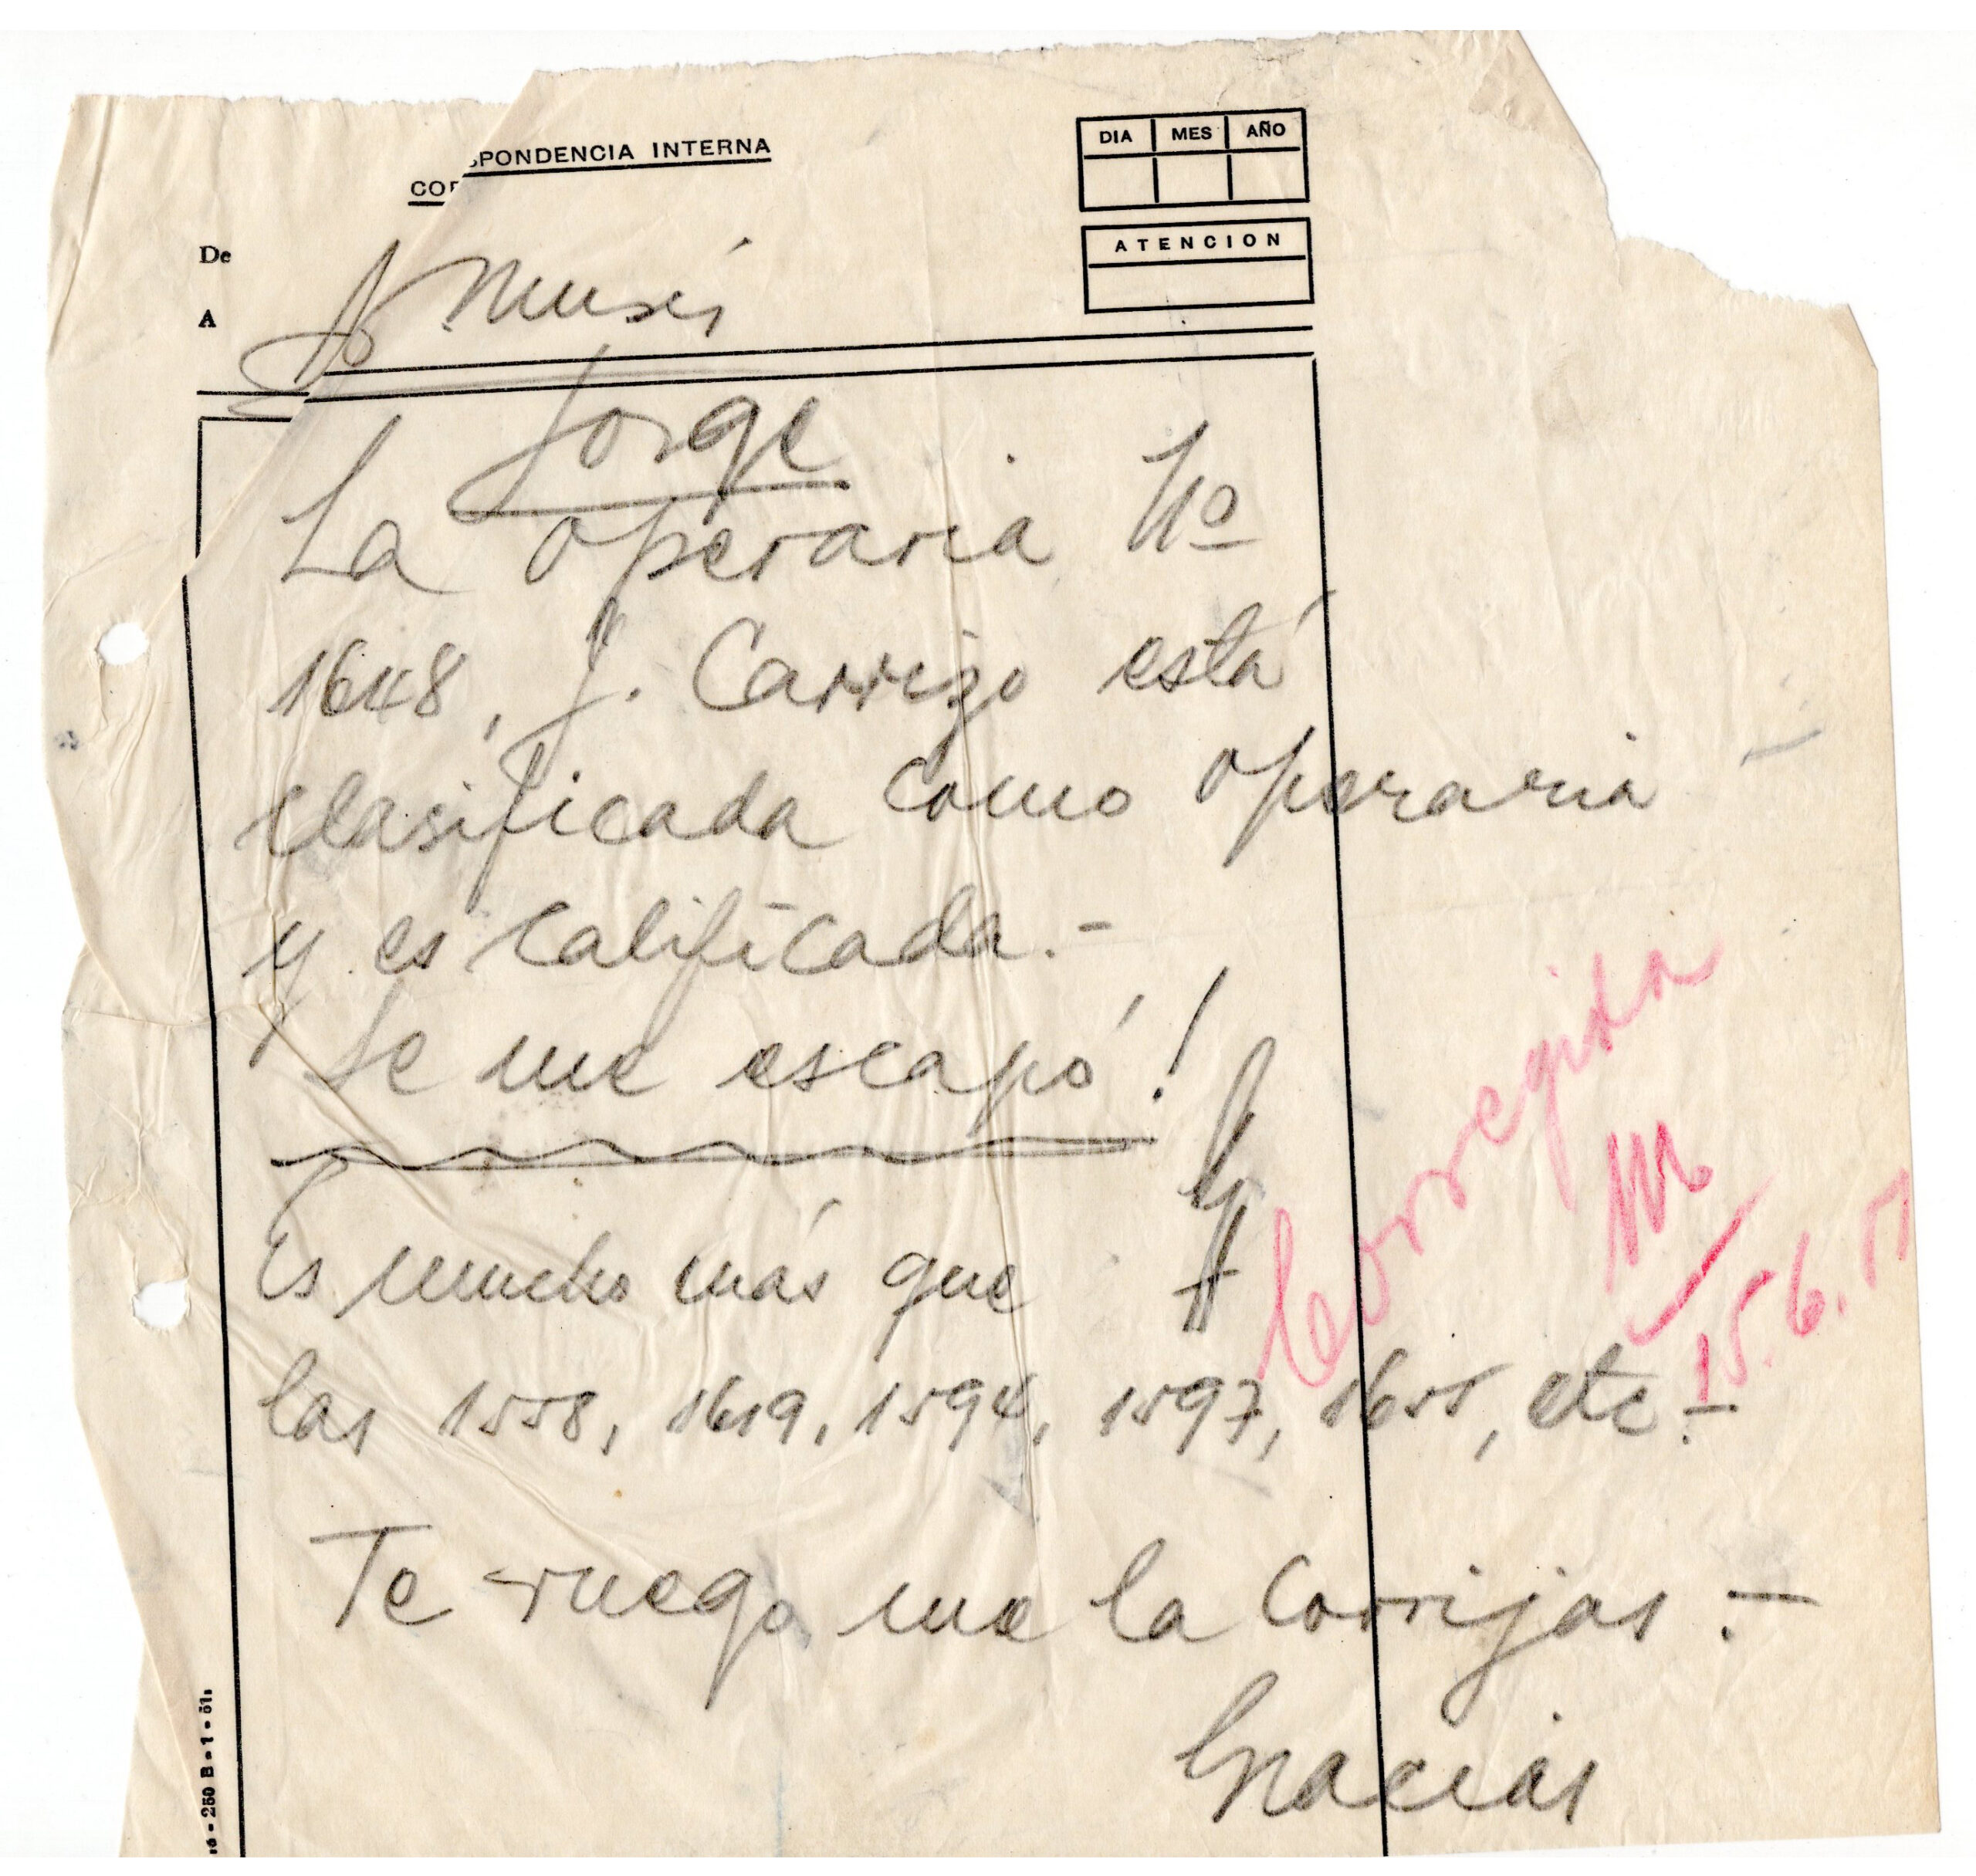 CORRESPONDENCIA INTERNA
DIA MES AÑO
ATENCION
De
A
Musí
Jorge
La operaria Nº
1648, J. Carrizo está
clasificada como operaria
y es calificada.-
Se me escapó!
Es mucho más que
las 1558, 1619, 1594, 1597, 1655, etc.-
Corregida
15.6.51
Te ruego me la corrijas.-
Gracias
250 B-1-51.